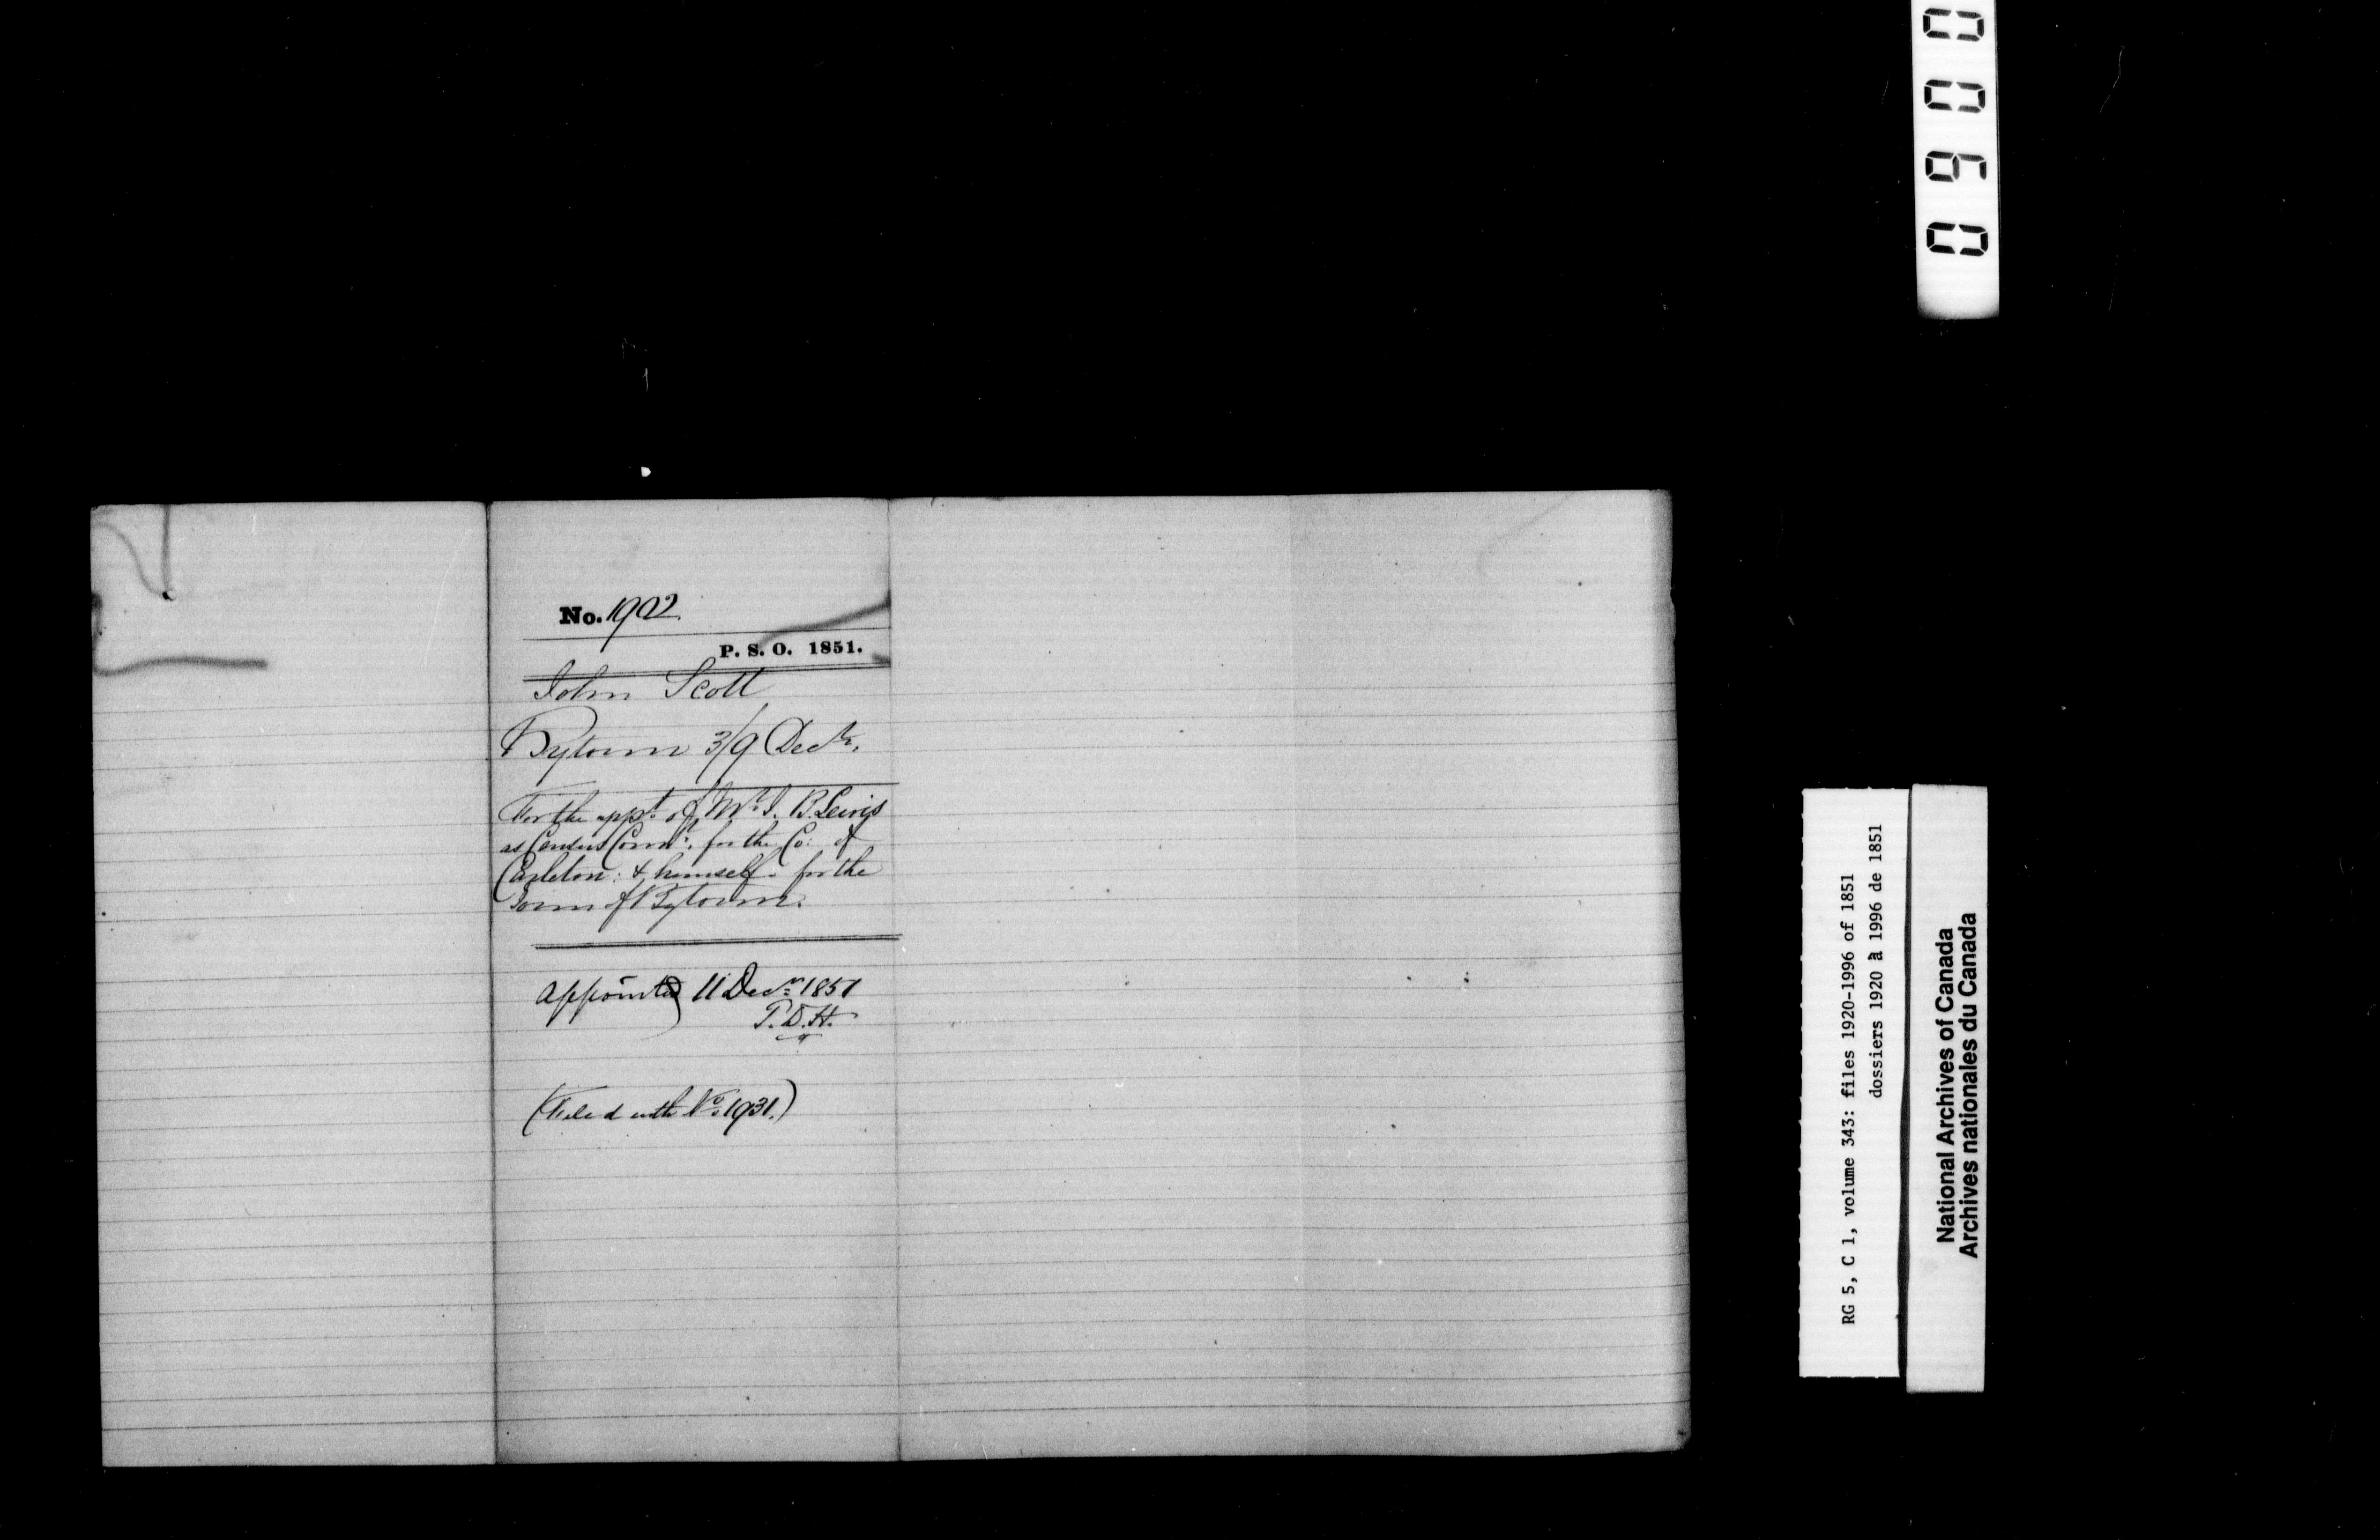 No. 1902
P. S. O. 1851.
John Scott
Bytown 3/9 Decr.
For the appt. of Mr. J. B. Lewis
as Census Commr. for the Co: of
Carleton: & himself - for the
Town of Bytown.
Appointed 11 Decr. 1851
P.D.H.
(Filed with No. 1931.)
0090
RG 5, C 1, volume 343: files 1920-1996 of 1851
dossiers 1920 à 1996 de 1851
National Archives of Canada
Archives nationales du Canada